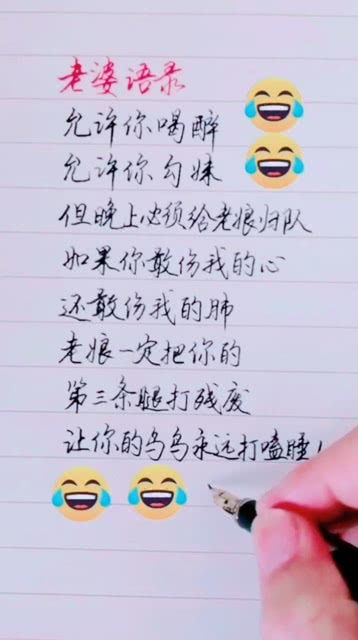 老婆语录
允许你喝醉
允许你勾妹
但晚上必须给老娘归队
如果你敢伤我的心
还敢伤我的肺
老娘一定把你的
第三条腿打残废
让你的鸟鸟永远打嗑睡！